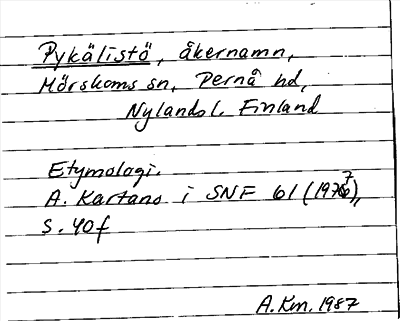 Pykälistö, åkernamn,
Mörskoms sn, Pernå hd,
Nylands l. Finland
Etymologi.
A. Kartano i SNF 61 (1977),
s. 40f
A.Km. 1987